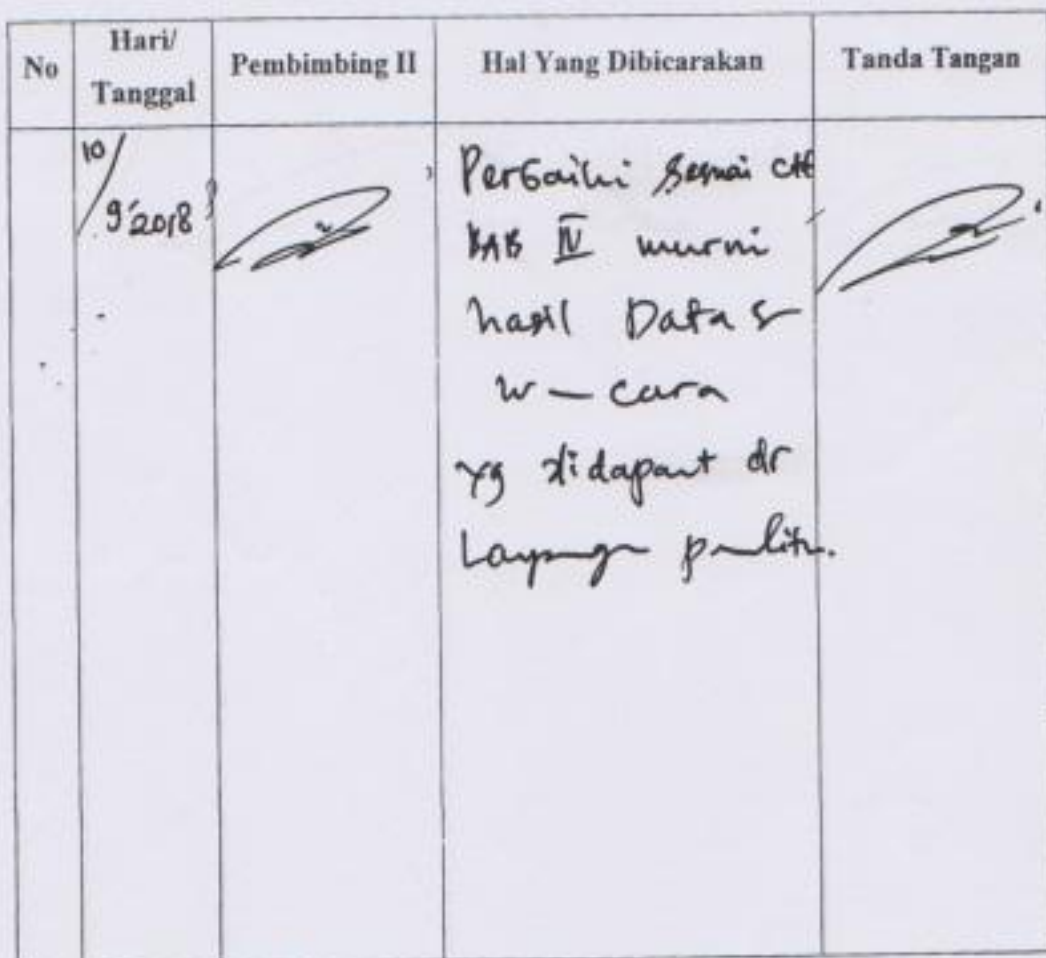 No Hari/ Tanggal Pembimbing II Hal Yang Dibicarakan Tanda Tangan
10/9'2018
Perbaiki sesuai ctt
BAB IV murni
hasil Data &
w-cara
yg didapat dr